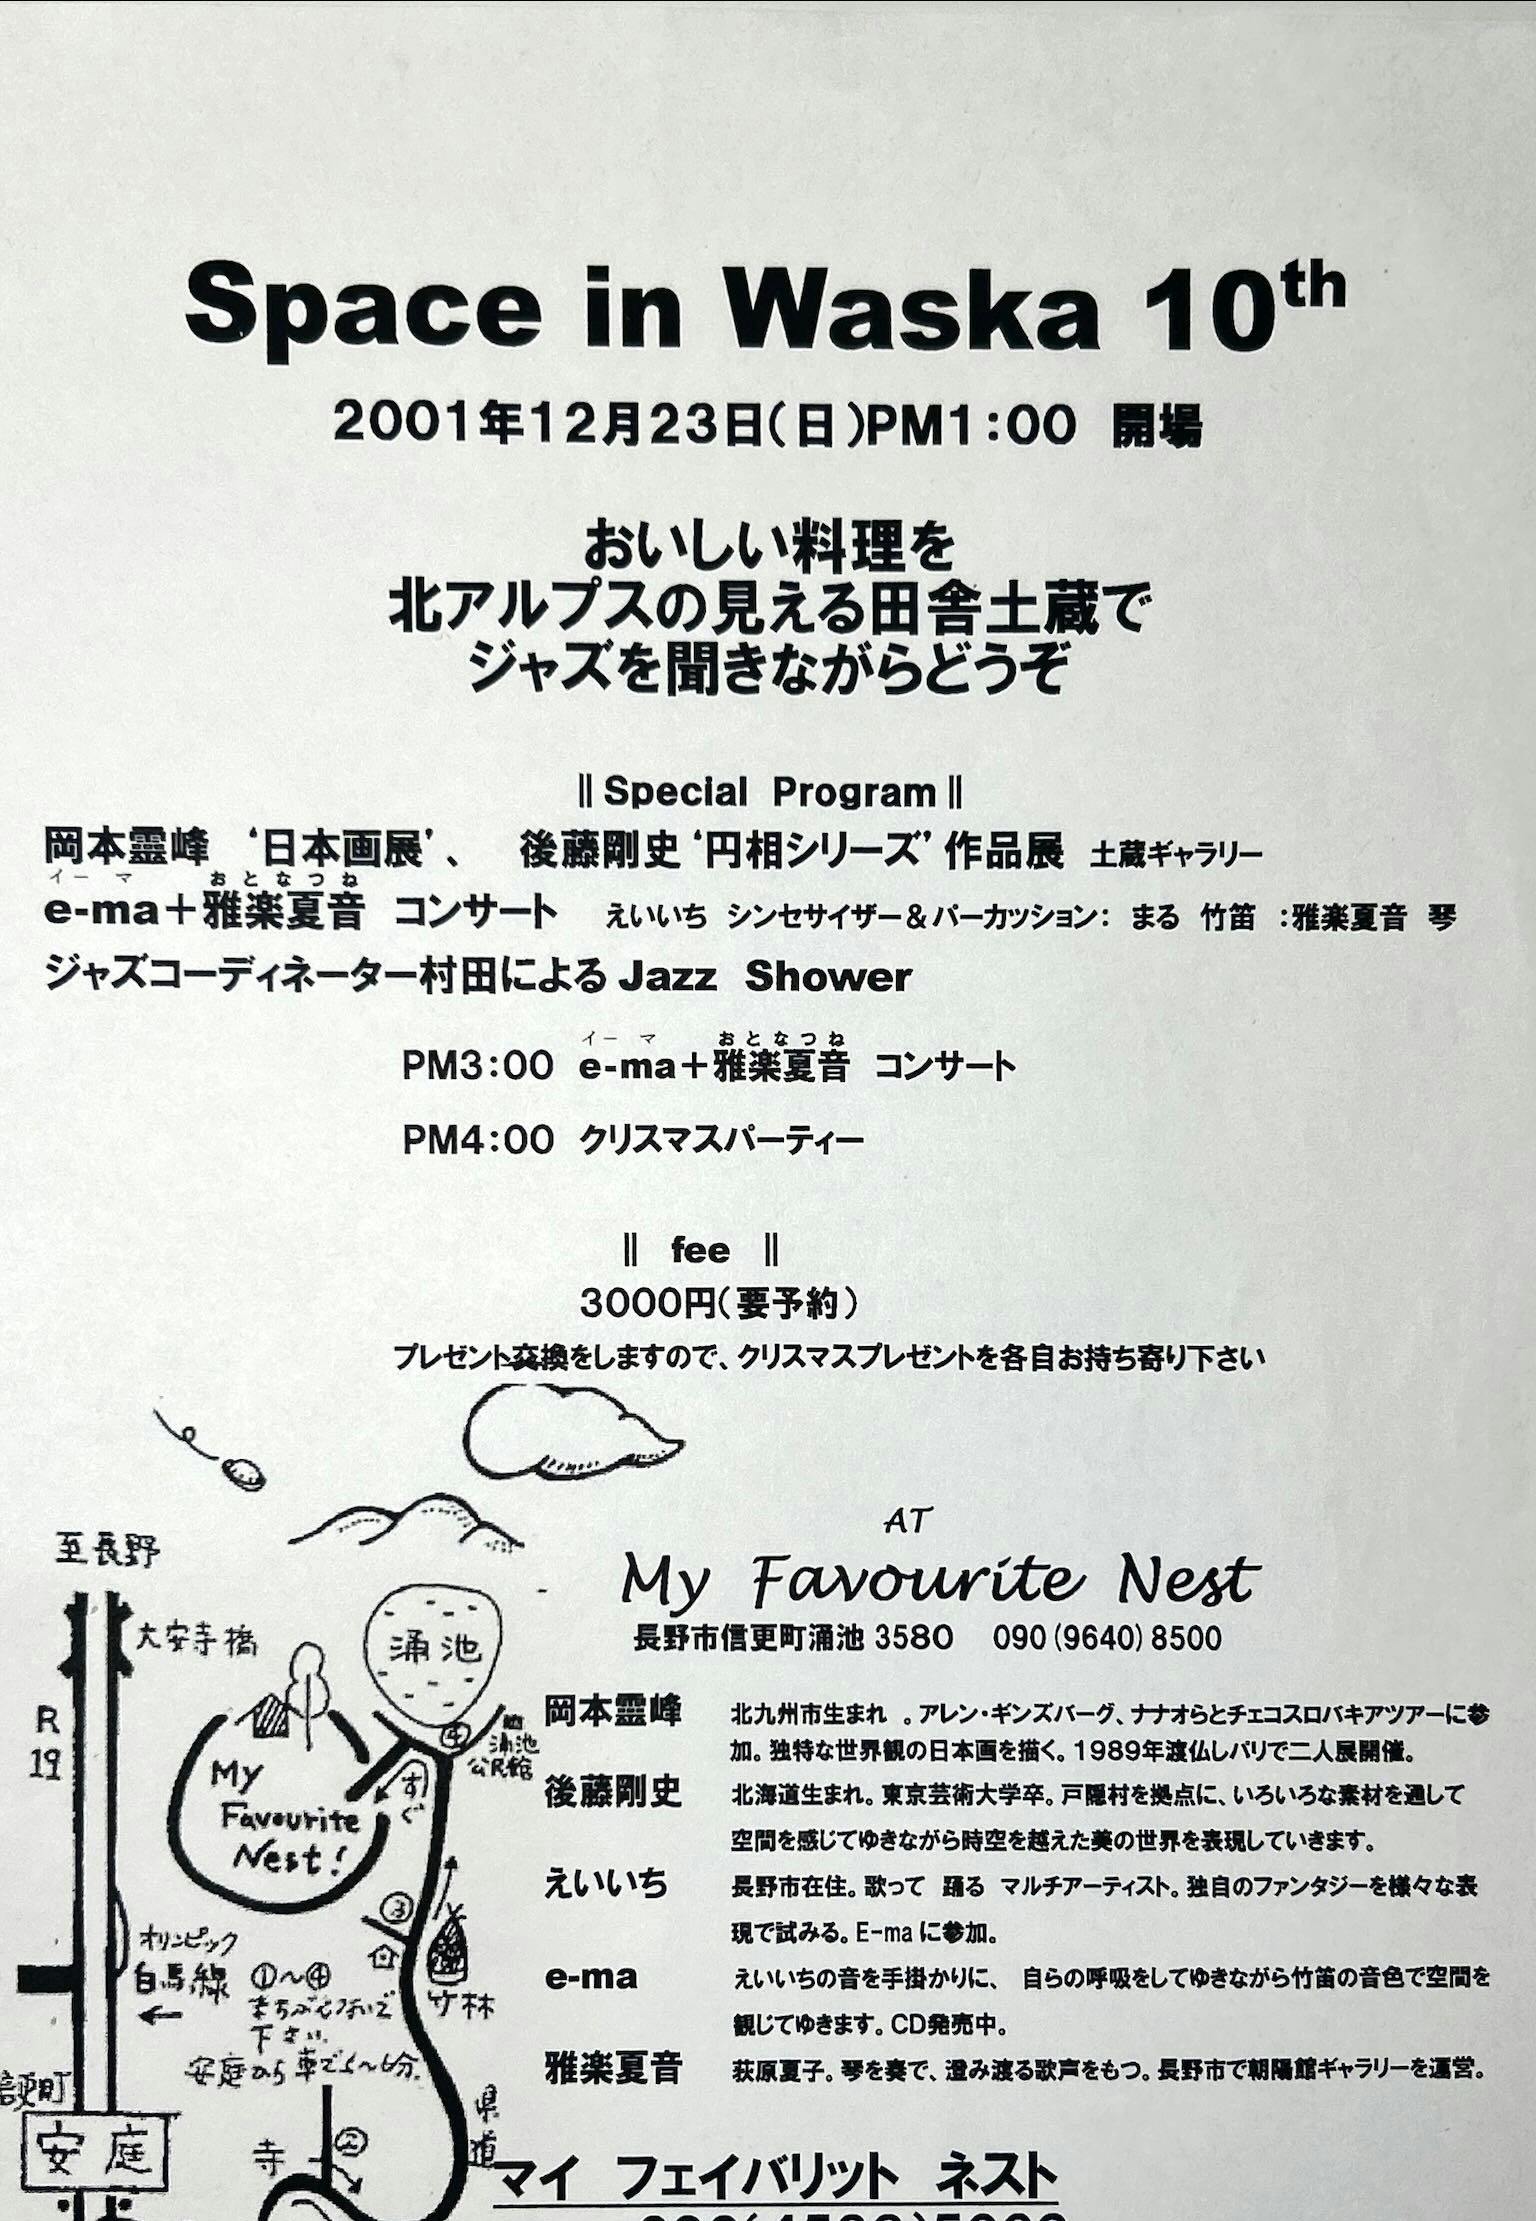 Space in Waska 10th
2001年12月23日(日)PM1:00 開場
おいしい料理を
北アルプスの見える田舎土蔵で
ジャズを聞きながらどうぞ
‖Special Program‖
岡本靈峰 ‘日本画展’、 後藤剛史‘円相シリーズ’作品展 土蔵ギャラリー
イーマ おとなつね
e-ma+雅楽夏音 コンサート えいいち シンセサイザー&パーカッション: まる 竹笛 :雅楽夏音 琴
ジャズコーディネーター村田による Jazz Shower
イーマ おとなつね
PM3:00 e-ma+雅楽夏音 コンサート
PM4:00 クリスマスパーティー
‖ fee ‖
3000円(要予約)
プレゼント交換をしますので、クリスマスプレゼントを各自お持ち寄り下さい
AT
My Favourite Nest
長野市信更町涌池 3580 090(9640)8500
岡本靈峰 北九州市生まれ 。アレン・ギンズバーグ、ナナオらとチェコスロバキアツアーに参
加。独特な世界観の日本画を描く。1989年渡仏しパリで二人展開催。
後藤剛史 北海道生まれ。東京芸術大学卒。戸隠村を拠点に、いろいろな素材を通して
空間を感じてゆきながら時空を越えた美の世界を表現していきます。
えいいち 長野市在住。歌って 踊る マルチアーティスト。独自のファンタジーを様々な表
現で試みる。E-ma に参加。
e-ma えいいちの音を手掛かりに、 自らの呼吸をしてゆきながら竹笛の音色で空間を
観じてゆきます。CD発売中。
雅楽夏音 荻原夏子。琴を奏で、澄み渡る歌声をもつ。長野市で朝陽館ギャラリーを運営。
マイ フェイバリット ネスト
至長野
大安寺橋
R
19
涌池
④
涌池
公民館
すぐ
My
Favourite
Nest!
③
竹林
オリンピック
白馬線
←
①〜④
まちがえないで
下さい.
安庭から 車で5〜6分.
県道
信更町
安庭
寺
②